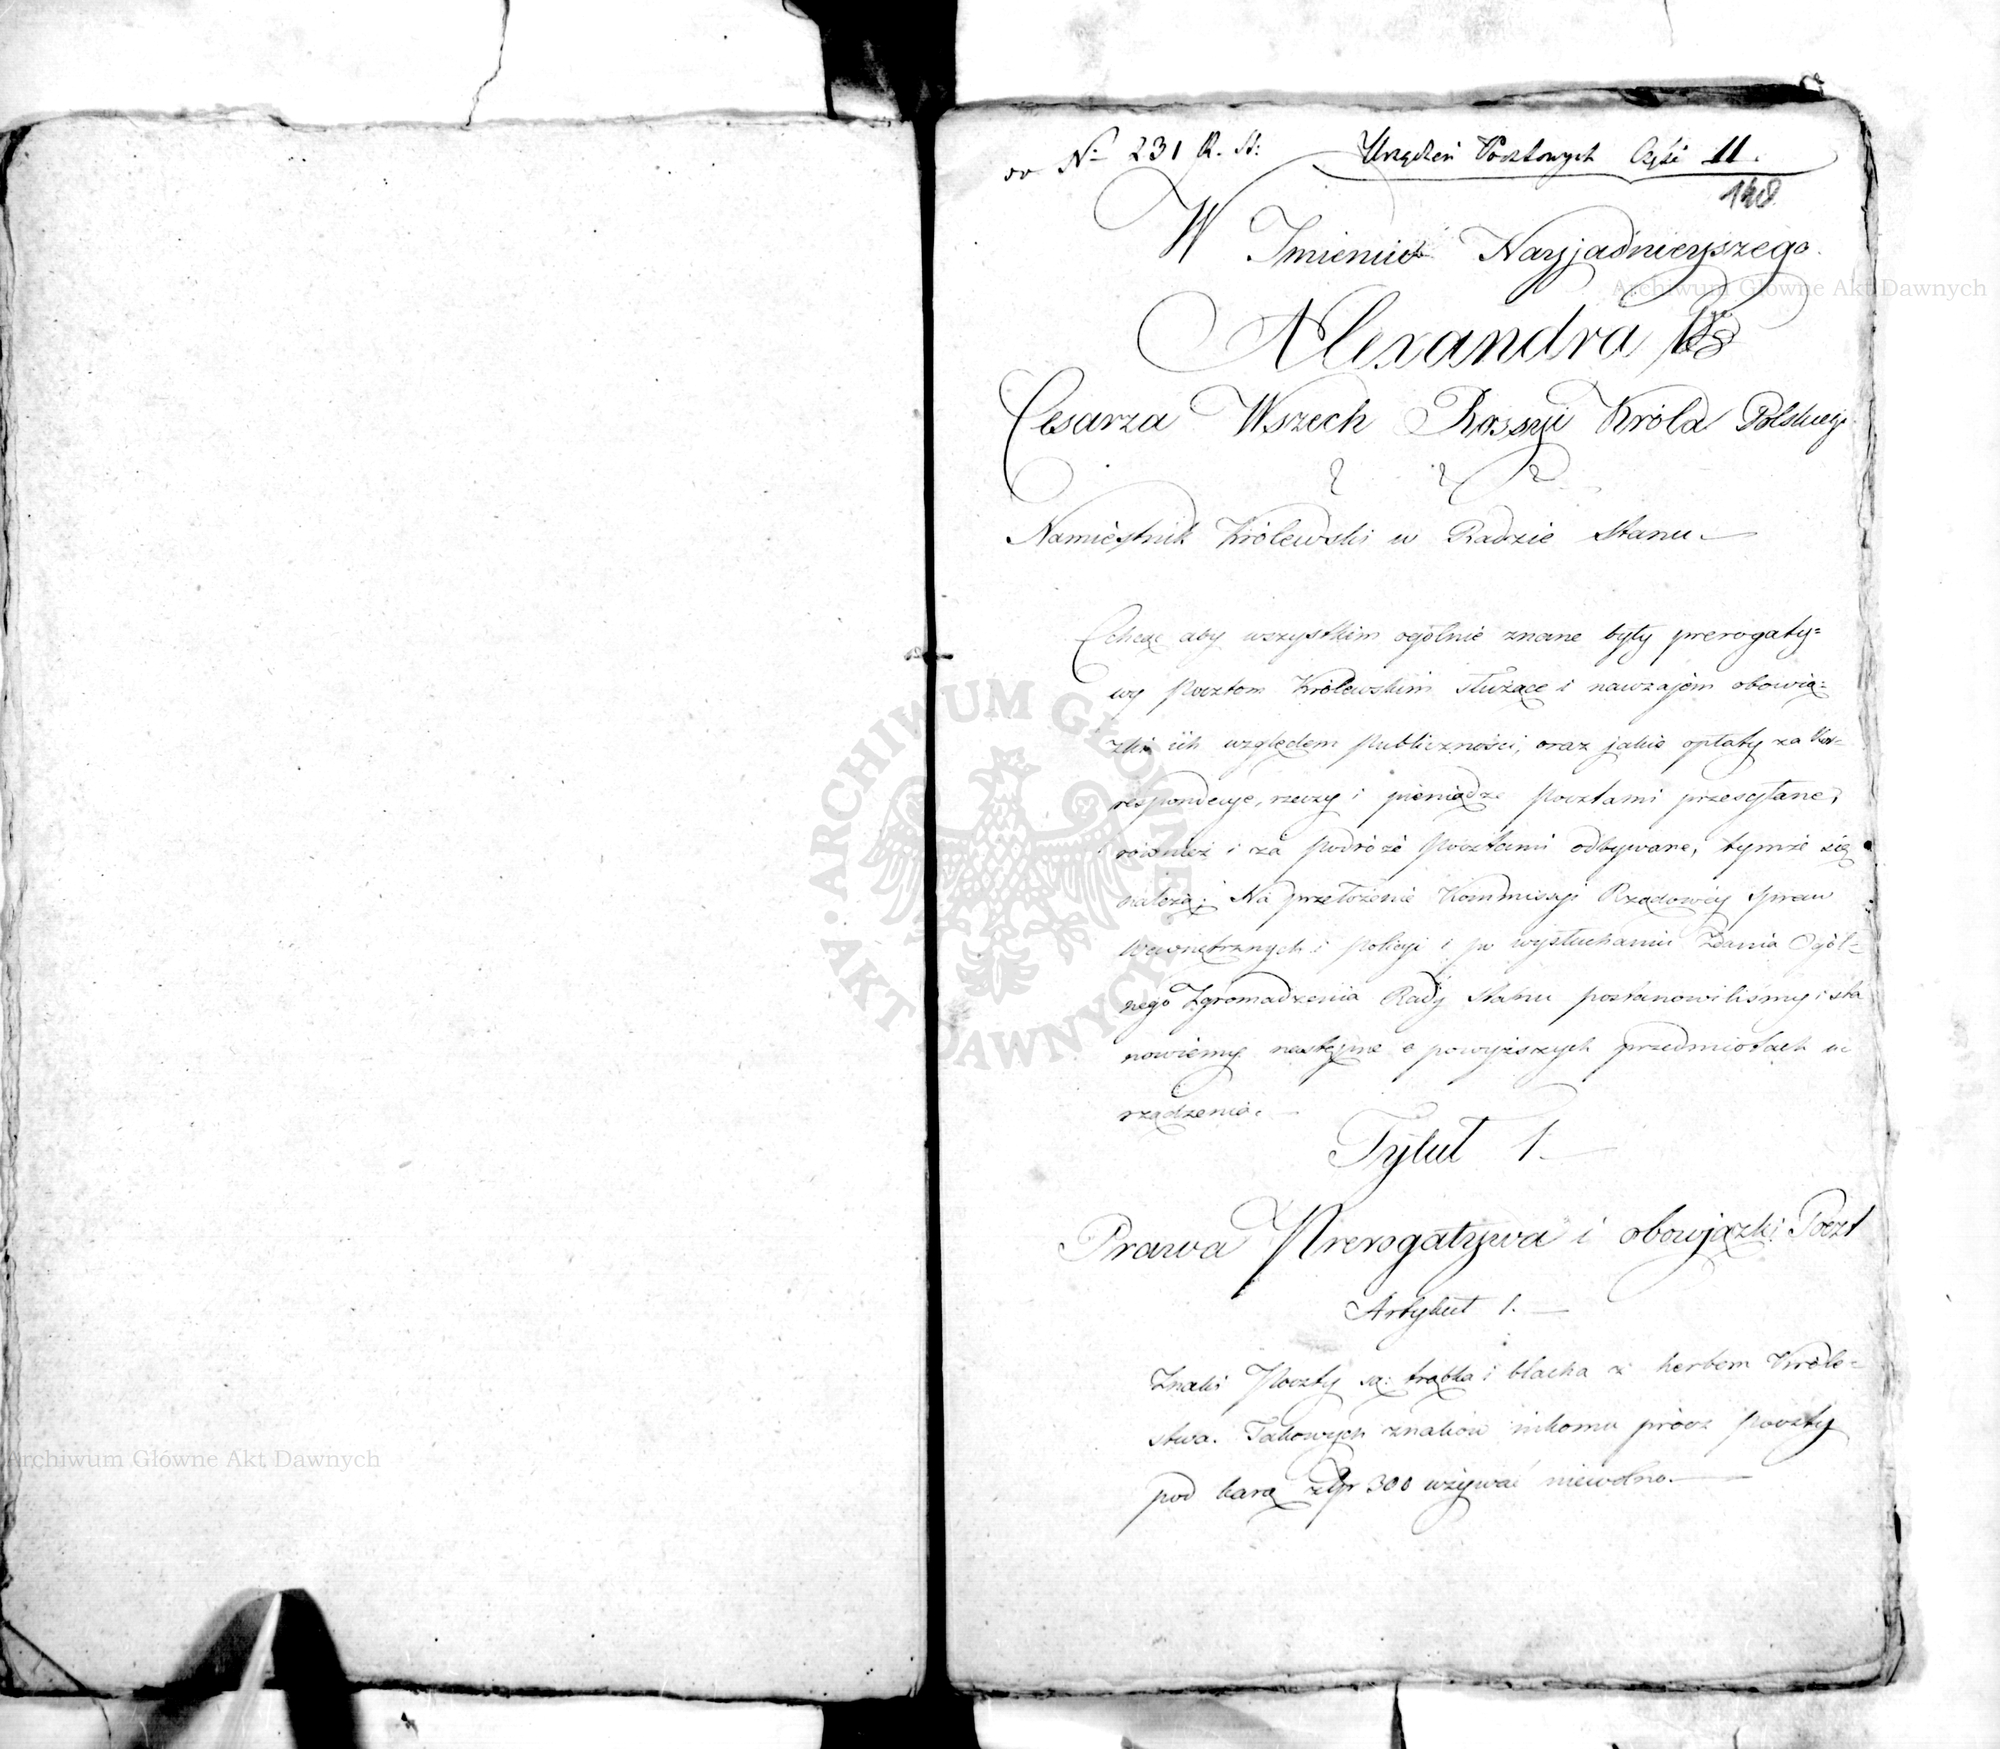 No 231 R. St:
Urządzeń Pocztowych Część II.
148
W Imieniu Nayjaśnieyszego
Alexandra
Cesarza Wszech Rossyi Króla Polskiego
Namiestnik Królewski w Radzie Stanu.
Chcąc aby wszystkim ogólnie znane były prerogaty=
wy Pocztom Królewskim służące i nawzajem obowią=
zki ich względem Publiczności, oraz jakie opłaty za Kor=
respondencye, rzeczy i pieniądze Pocztami przesyłane,
również i za podróże Pocztami odbywane, tymże się
należą; Na przełożenie Kommissyi Rządowéy Spraw
Wewnętrznych i Policyi i po wysłuchaniu Zdania Ogól=
nego Zgromadzenia Rady Stanu postanowiliśmy i sta
nowiemy następne o powyższych przedmiotach u
rządzenia.
Tytuł 1.
Prawa Prerogatywa i obowjązki Poczt
Artykuł 1.
Znaki Poczty są: trąbka i blacha z herbem Króle=
stwa. Takowych znaków nikomu prócz Poczty
pod karą złp 300 używać niewolno.
Archiwum Główne Akt Dawnych
Archiwum Główne Akt Dawnych
ARCHIWUM GŁÓWNE AKT DAWNYCH